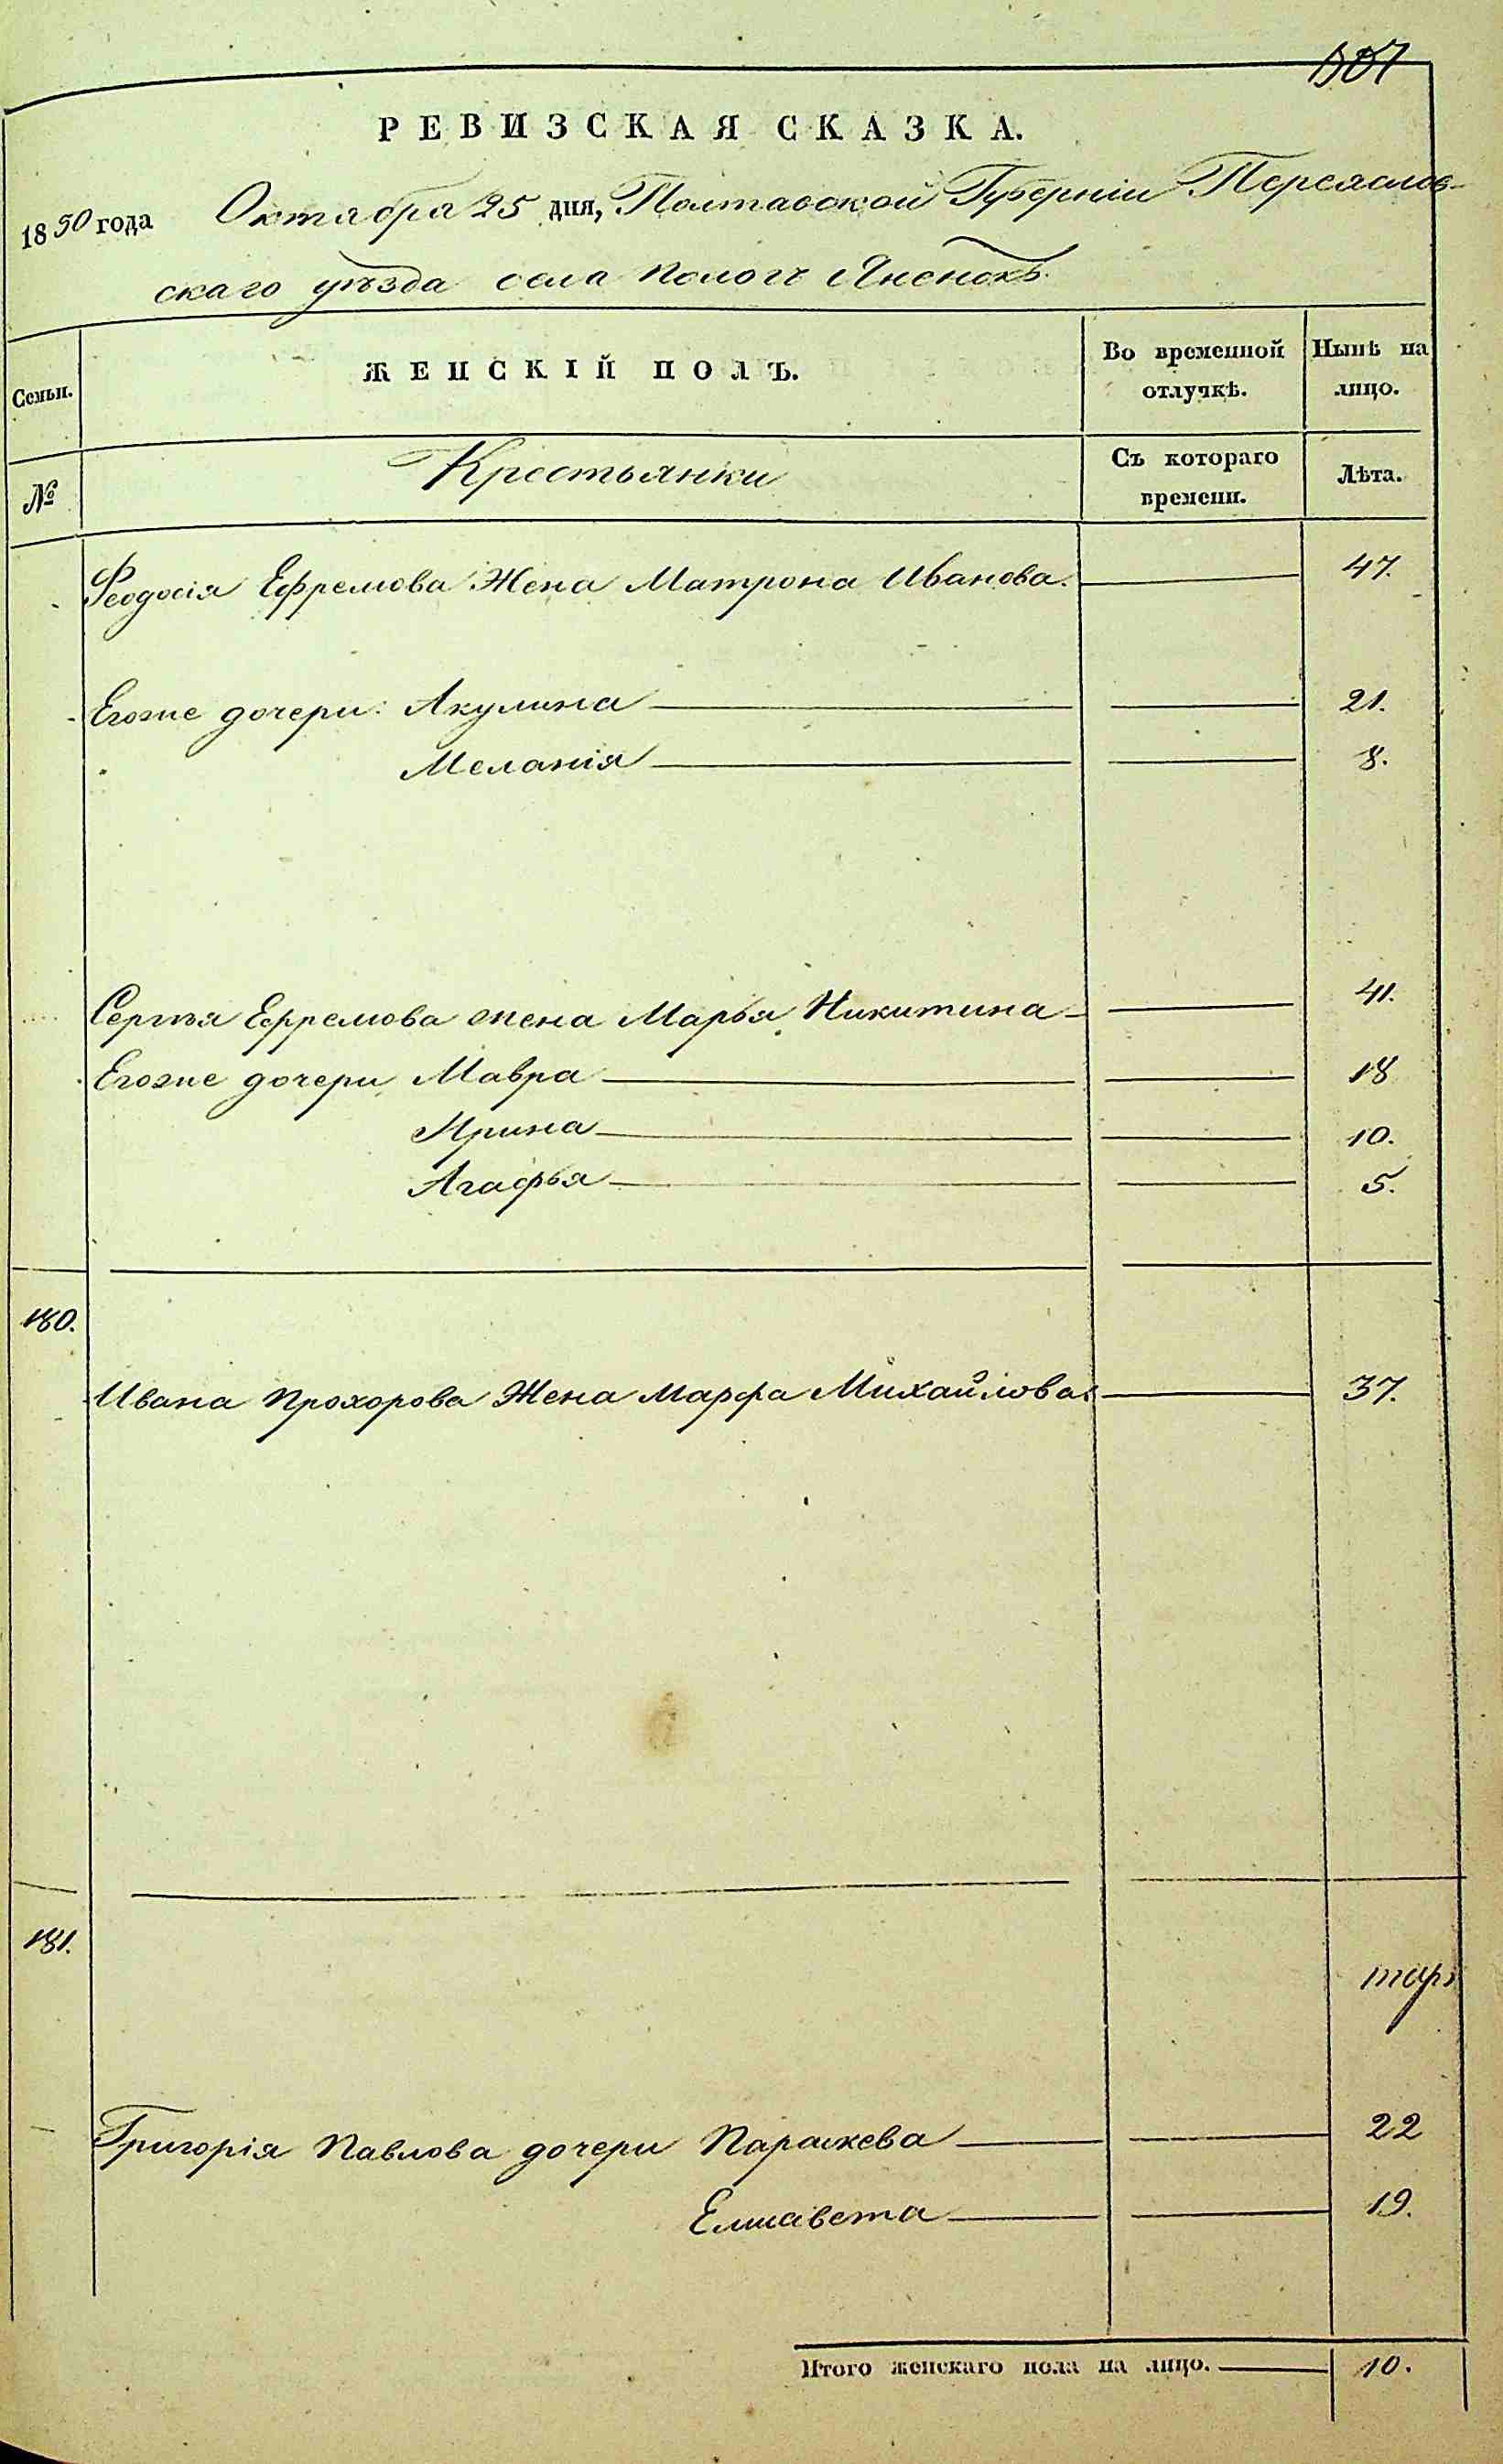 РЕВИЗСКАЯ СКАЗКА.
1850 года Октября 25 дня, Полтавской Губерніи Переяслов-
скаго уѣзда села Пологъ Яненокъ.
Семьи. ЖЕНСКІЙ ПОЛЪ. Во временной отлучкѣ. Нынѣ на лицо.
№ Крестьянки Съ котораго времени. Лѣта.
Феодосія Ефремова Жена Матрона Иванова. 47.
Егоже дочери: Акулина 21.
Меланія 8.
Сергѣя Ефремова жена Марья Никитина 41.
Егоже дочери Мавра 18
Ирина 10.
Агафья 5.
180.
Ивана Прохорова Жена Марфа Михайлова. 37.
181.
Григорія Павлова дочери Параскева 22
Елисавета 19.
Итого женскаго пола на лицо. 10.